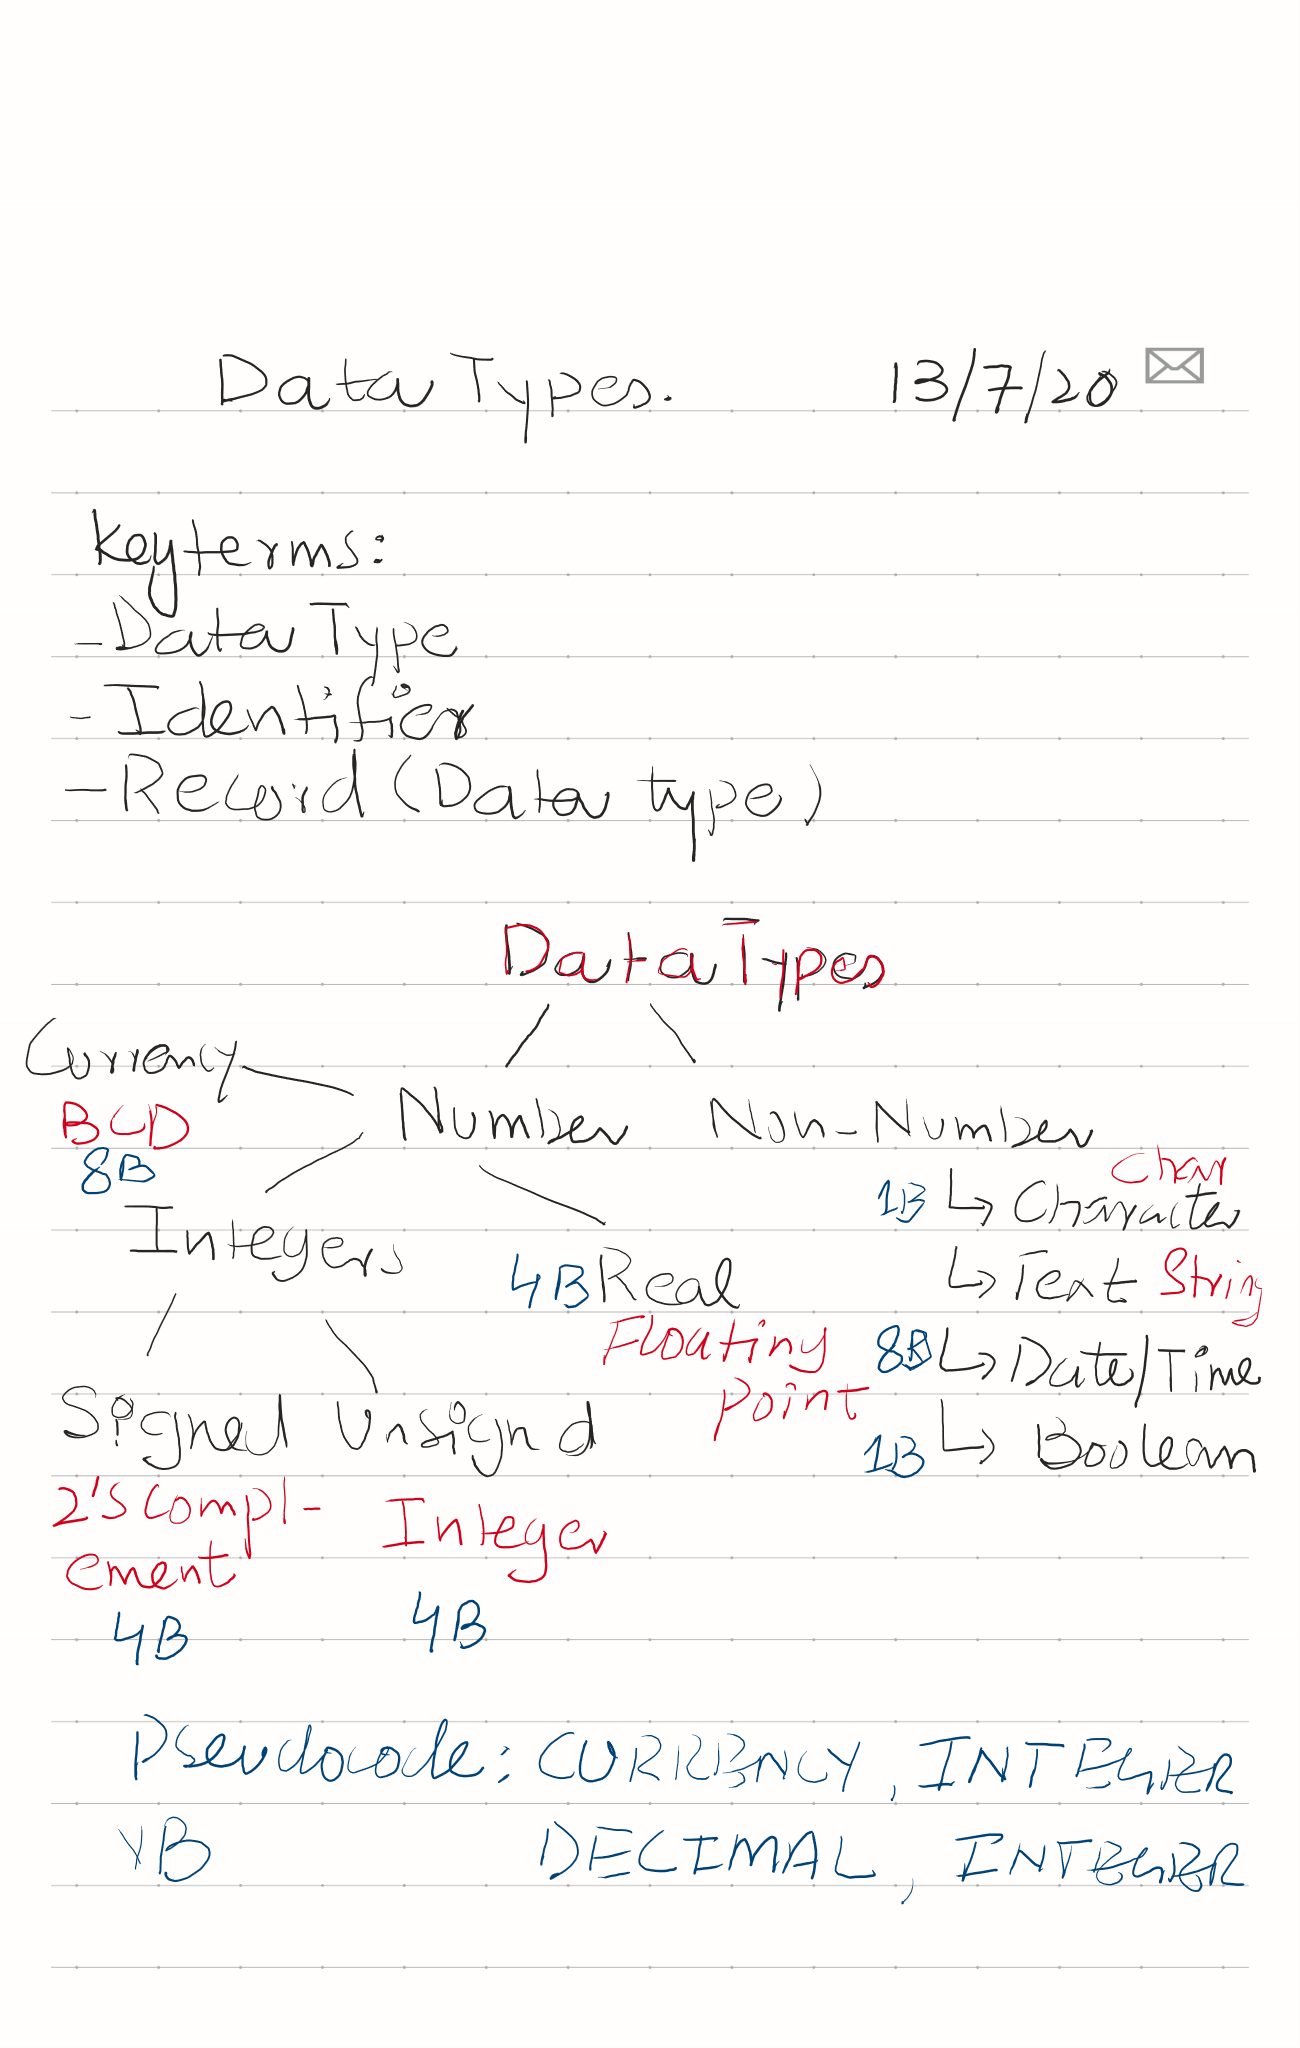 Data Types. 13/7/20
Keyterms:
- Data Type
- Identifier
- Record (Data type)
Data Types
Currency
BCD
8B
Number
Non-Number
Integers
4B Real
Floating
point
Char
1B ↳ Character
↳ Text String
8B ↳ Date/Time
1B ↳ Boolean
Signed Unsignd
2's compl-
ement
4B
Integer
4B
Pseudocode: CURRENCY, INTEGER
VB DECIMAL, INTEGER